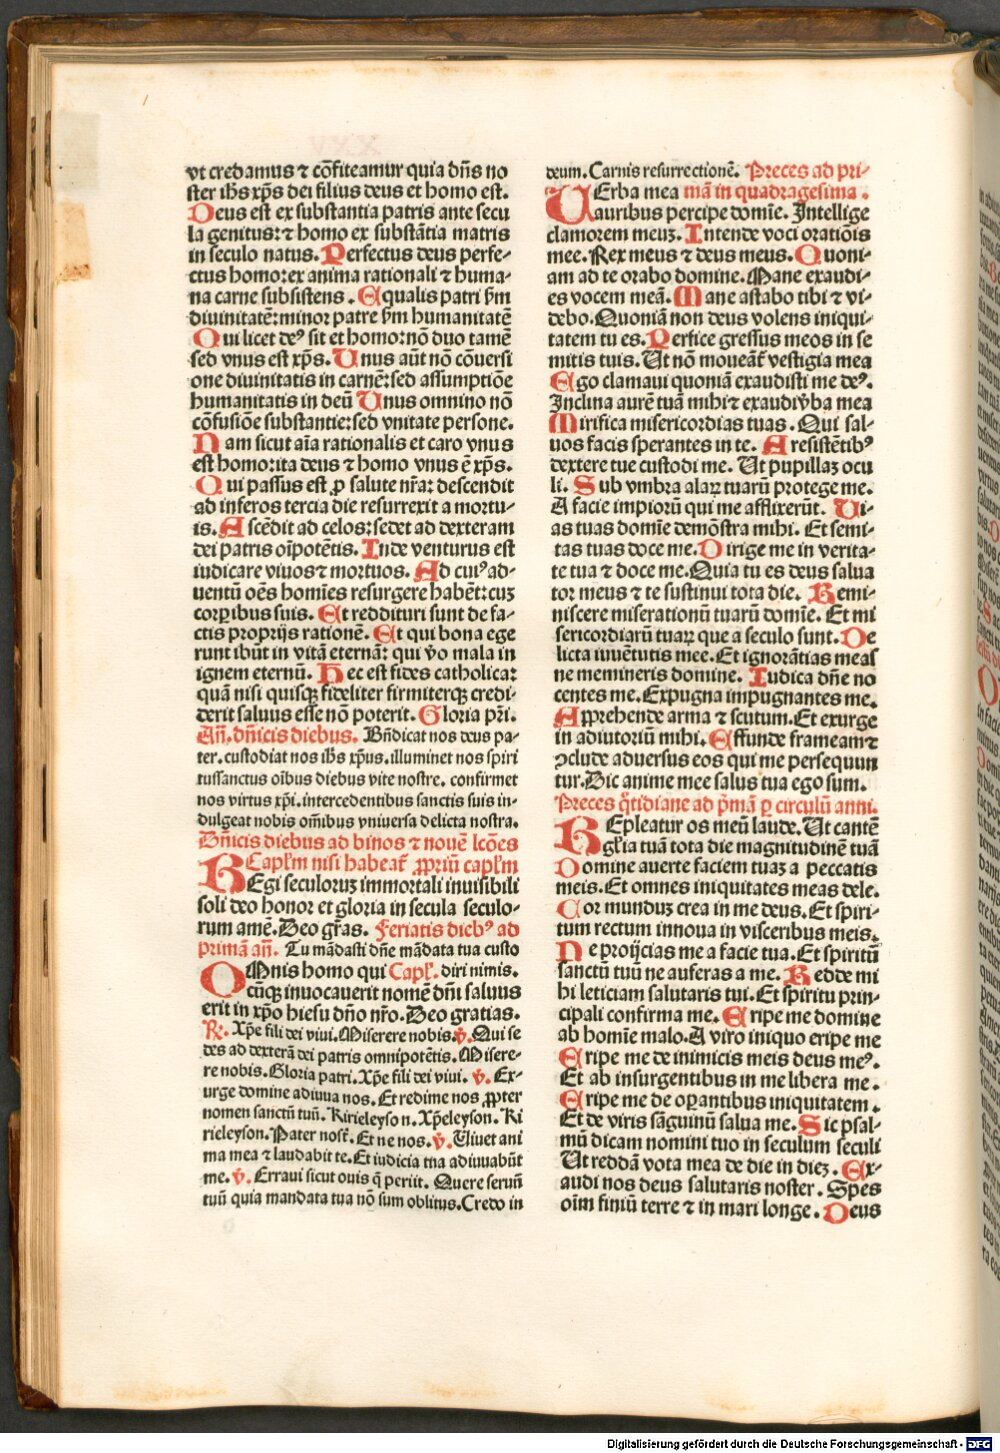 vt credamus ⁊ cōfiteamur quia dn̄s no
ster ihs xp̄s dei filius deus et homo est.
Deus est ex substantia patris ante secu
la genitus: ⁊ homo ex substātia matris
in seculo natus. Perfectus deus perfe-
ctus homo: ex anima rationali ⁊ huma-
na carne subsistens. Equalis patri ẜm
diuinitatē: minor patre ẜm humanitatē
Qui licet deꝰ sit et homo: nō duo tamē
sed vnus est xp̄s. Unus aūt nō cōuersi
one diuinitatis in carnē: sed assumptiōe
humanitatis in deū Unus omnino nō
cōfusiōe substantie: sed vnitate persone.
Nam sicut aīa rationalis et caro vnus
est homo: ita deus ⁊ homo vnus ē xp̄s.
Qui passus est ꝓ salute nr̄a: descendit
ad inferos tercia die resurrexit a mortu-
is. Ascēdit ad celos: sedet ad dexteram
dei patris oīpotētis. Inde venturus est
iudicare viuos ⁊ mortuos. Ad cuiꝰ ad-
uentū oēs homīes resurgere habēt: cuꝫ
corꝑibus suis. Et reddituri sunt de fa-
ctis proprijs rationē. Et qui bona ege
runt ibūt in vitā eternā: qui v̄o mala in
ignem eternū. Hec est fides catholica:
quā nisi quisqꝫ fideliter firmiterqꝫ credi-
derit saluus esse nō poterit. Gloria pr̄i.
Añ. dn̄icis diebus. Bn̄dicat nos deus pa-
ter. custodiat nos ihs xp̄us. illuminet nos spiri
tussanctus oībus diebus vite nostre. confirmet
nos virtus xp̄i. intercedentibus sanctis suis in-
dulgeat nobis om̄ibus vniuersa delicta nostra.
Dn̄icis diebus ad binos ⁊ nouē lcōes
Capl̄m nisi habeat̄ ꝓpriū capl̄m
REgi seculoruꝫ immortali inuisibili
soli deo honor et gloria in secula seculo-
rum amē. Deo gr̄as. Feriatis diebꝰ ad
primā añ. Tu mādasti dn̄e mādata tua custo
OMnis homo qui Capl̄. diri nimis.
cūqꝫ inuocauerit nomē dn̄i saluus
erit in xp̄o hiesu dn̄o nr̄o. Deo gratias.
R̄. Xp̄e fili dei viui. Miserere nobis. v̄. Qui se
des ad dexterā dei patris omnipotētis. Misere-
re nobis. Gloria patri. Xp̄e fili dei viui. v̄. Ex-
urge domine adiuua nos. Et redime nos ꝓpter
nomen sanctū tuū. Kirieleyson. Xp̄eleyson. Ki
rieleyson. Pater nost̄. Et ne nos. v̄. Uiuet ani
ma mea ⁊ laudabit te. Et iudicia tua adiuuabūt
me. v̄. Erraui sicut ouis q̄ periit. Quere seruū
tuū quia mandata tua nō sum oblitus. Credo in
deum. Carnis resurrectionē. Preces ad pri-
UErba mea mā in quadragesima.
auribus percipe domīe. Intellige
clamorem meuꝫ. Intende voci oratiōis
mee. Rex meus ⁊ deus meus. Quoni-
am ad te orabo domine. Mane exaudi-
es vocem meā. Mane astabo tibi ⁊ vi-
debo. Quoniā non deus volens iniqui-
tatem tu es. Perfice gressus meos in se
mitis tuis. Ut nō moueāt̄ vestigia mea
Ego clamaui quoniā exaudisti me deꝰ.
Inclina aurē tuā mihi ⁊ exaudi v̄ba mea
Mirifica misericordias tuas. Qui sal-
uos facis sperantes in te. A resistētibꝰ
dextere tue custodi me. Ut pupillaꝫ ocu
li. Sub vmbra alaꝝ tuarū protege me.
A facie impiorū qui me afflixerūt. Ui-
as tuas domīe demōstra mihi. Et semi-
tas tuas doce me. Dirige me in verita-
te tua ⁊ doce me. Quia tu es deus salua
tor meus ⁊ te sustinui tota die. Remi-
niscere miserationū tuarū domīe. Et mi
sericordiarū tuaꝝ que a seculo sunt. De
licta iuuētutis mee. Et ignorātias meas
ne memineris domine. Iudica dn̄e no
centes me. Expugna impugnantes me.
Apprehende arma ⁊ scutum. Et exurge
in adiutoriū mihi. Effunde frameam ⁊
ↄclude aduersus eos qui me persequun
tur. Dic anime mee salus tua ego sum.
Preces q̄tidiane ad p̄mā ꝑ circulū anni.
REpleatur os meū laude. Ut cantē
gl̄ia tuā tota die magnitudinē tuā
Domine auerte faciem tuaꝫ a peccatis
meis. Et omnes iniquitates meas dele.
Cor munduꝫ crea in me deus. Et spiri-
tum rectum innoua in visceribus meis.
Ne proijcias me a facie tua. Et spiritū
sanctū tuū ne auferas a me. Redde mi
hi leticiam salutaris tui. Et spiritu prin-
cipali confirma me. Eripe me domine
ab homīe malo. A viro iniquo eripe me
Eripe me de inimicis meis deus meꝰ.
Et ab insurgentibus in me libera me.
Eripe me de oꝑantibus iniquitatem.
Et de viris sāguinū salua me. Sic psal-
mū dicam nomini tuo in seculum seculi
Ut reddā vota mea de die in dieꝫ. Ex-
audi nos deus salutaris noster. Spes
oīm finiū terre ⁊ in mari longe. Deus
Digitalisierung gefördert durch die Deutsche Forschungsgemeinschaft - DFG